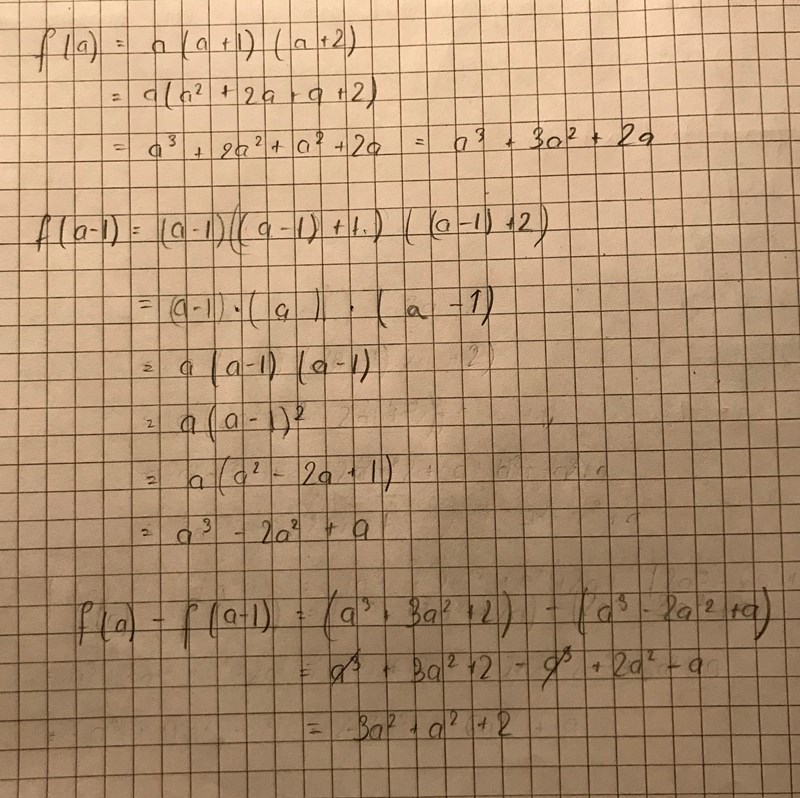 f(a) = a(a+1)(a+2)
= a(a² + 2a + a + 2)
= a³ + 2a² + a² + 2a = a³ + 3a² + 2a
f(a-1) = (a-1)((a-1)+1.) ((a-1)+2)
= (a-1)·(a)·(a-1)
= a(a-1)(a-1)
= a(a-1)²
= a(a² - 2a + 1)
= a³ - 2a² + a
f(a) - f(a-1) = (a³ + 3a² + 2) - (a³ - 2a² + a)
= a³ + 3a² + 2 - a³ + 2a² - a
= 3a² + a² + 2